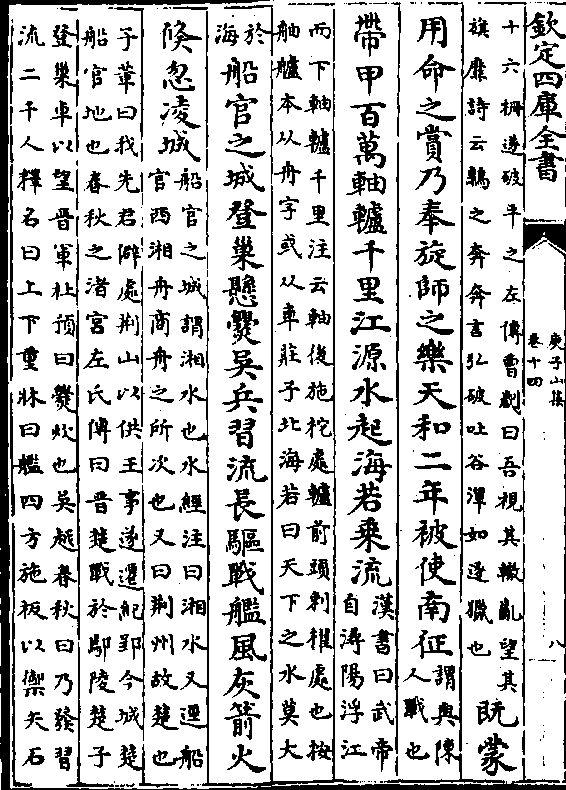 欽定四庫全書
庚子山集
卷十四
八
十六柵遂破平之左傳曹劌曰吾視其轍亂望其
旗靡詩云鶉之奔奔言弘破吐谷渾如逐獵也
既蒙
用命之賞乃奉旋師之樂天和二年被使南征
謂與陳
人戰也
帶甲百萬軸轤千里江源水起海若乘流
漢書曰武帝
自潯陽浮江
而下軸轤千里注云軸後施柁處轤前頭刺櫂處也按
舳艫本从舟字或从車莊子北海若曰天下之水莫大
於
海
船官之城登巢懸爨吳兵習流長驅戰艦風灰箭火
倏忽凌城
船官之城謂湘水也水經注曰湘水又逕船
官西湘舟商舟之所次也又曰荆州故楚也
子革曰我先君僻處荆山以供王事遂遷紀郢今城楚
船官地也春秋之渚宮左氏傳曰晉楚戰於鄢陵楚子
登巢車以望晉軍杜預曰爨炊也吳越春秋曰乃發習
流二千人釋名曰上下重牀曰艦四方施板以禦矢石